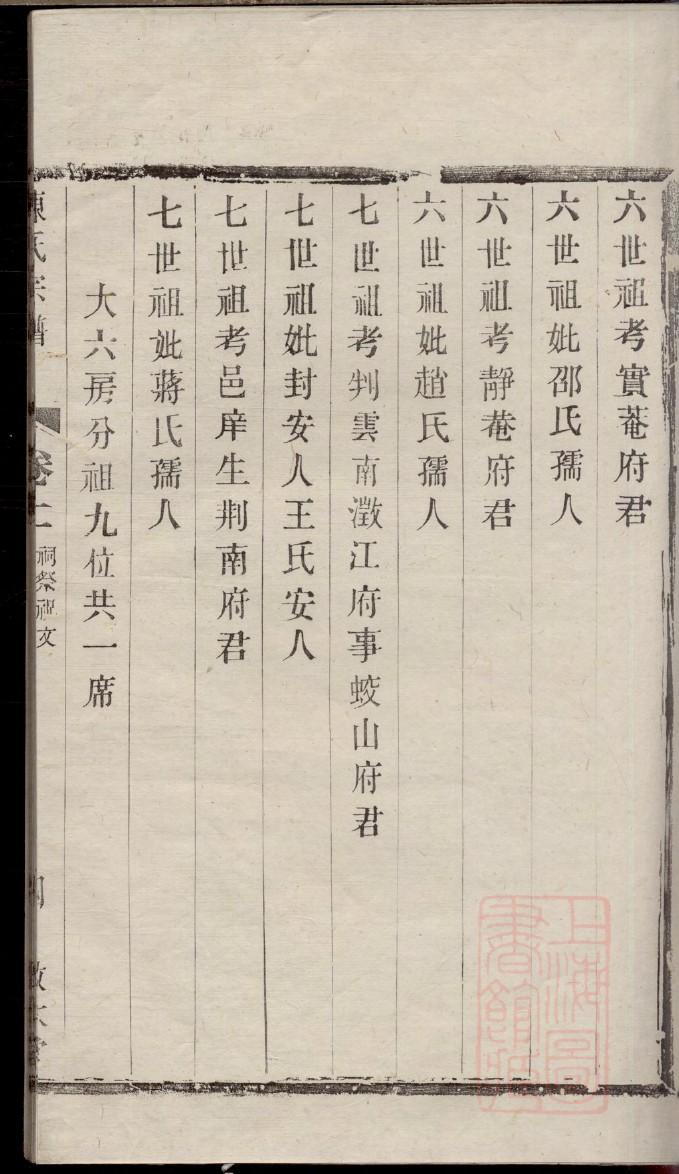 六世祖考實菴府君
六世祖妣邵氏孺人
六世祖考靜菴府君
六世祖妣趙氏孺人
七世祖考判雲南澂江府事蛟山府君
七世祖妣封安人王氏安人
七世祖考邑庠生荆南府君
七世祖妣蔣氏孺人
大六房分祖九位共一席
陳氏宗譜
卷二
祠祭祖文
上海圖書館藏